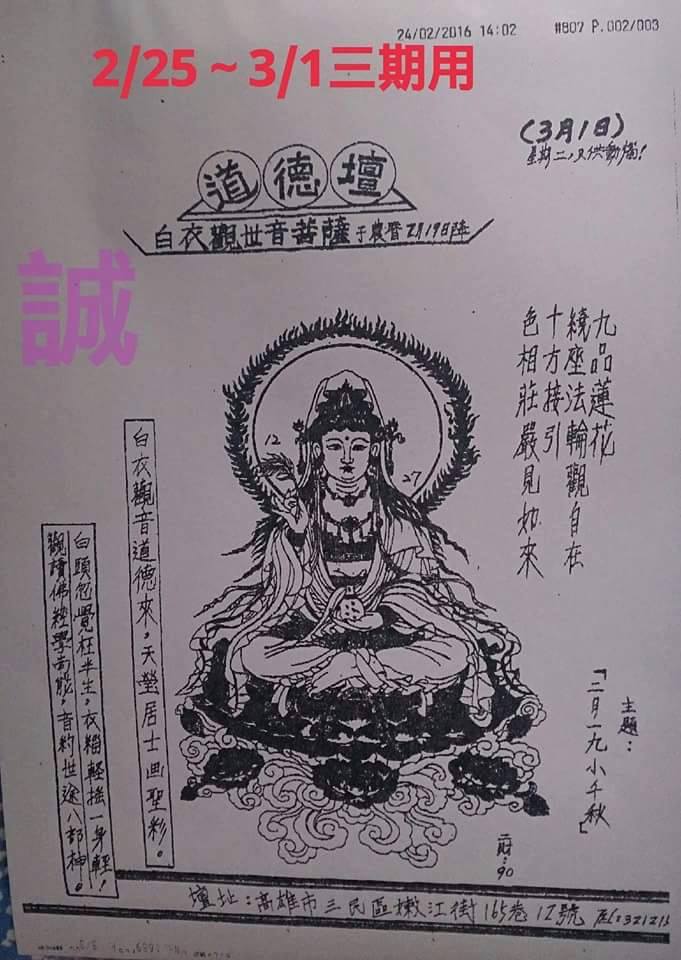 24/02/2016 14:02
#807 P.002/003
2/25～3/1三期用
(3月1日)
星期二,只供動擺!
道德壇
白衣觀世音菩薩于農曆2月19日降
誠
九品蓮花
繞座法輪觀自在
十方接引
色相莊嚴見如來
12
27
白衣觀音道德來。天瑩居士画聖彩。
白頭忽覺枉半生。衣裙輕搖一身輕!
觀讀佛經學而能。音約世途八部神。
主題:
「二月一九小千秋」
二財:90
壇址:高雄市三民區嫩江街165巷12號